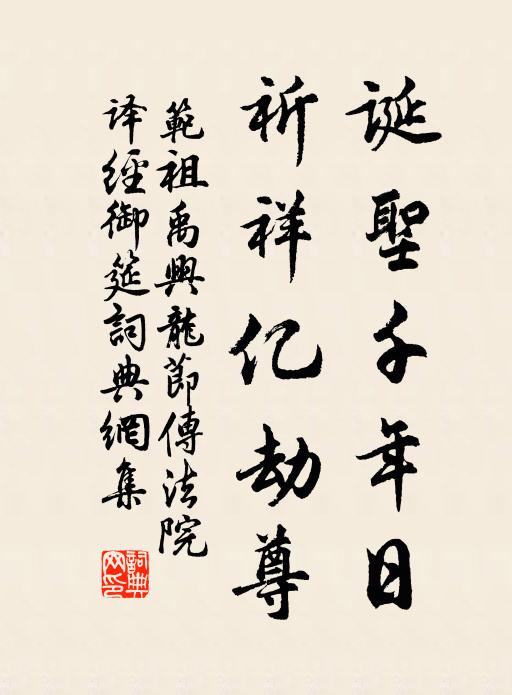 誕聖千年日
祈祥亿劫尊
範祖禹興龍節傳法院
译經御筵詞典網集
詞典网印